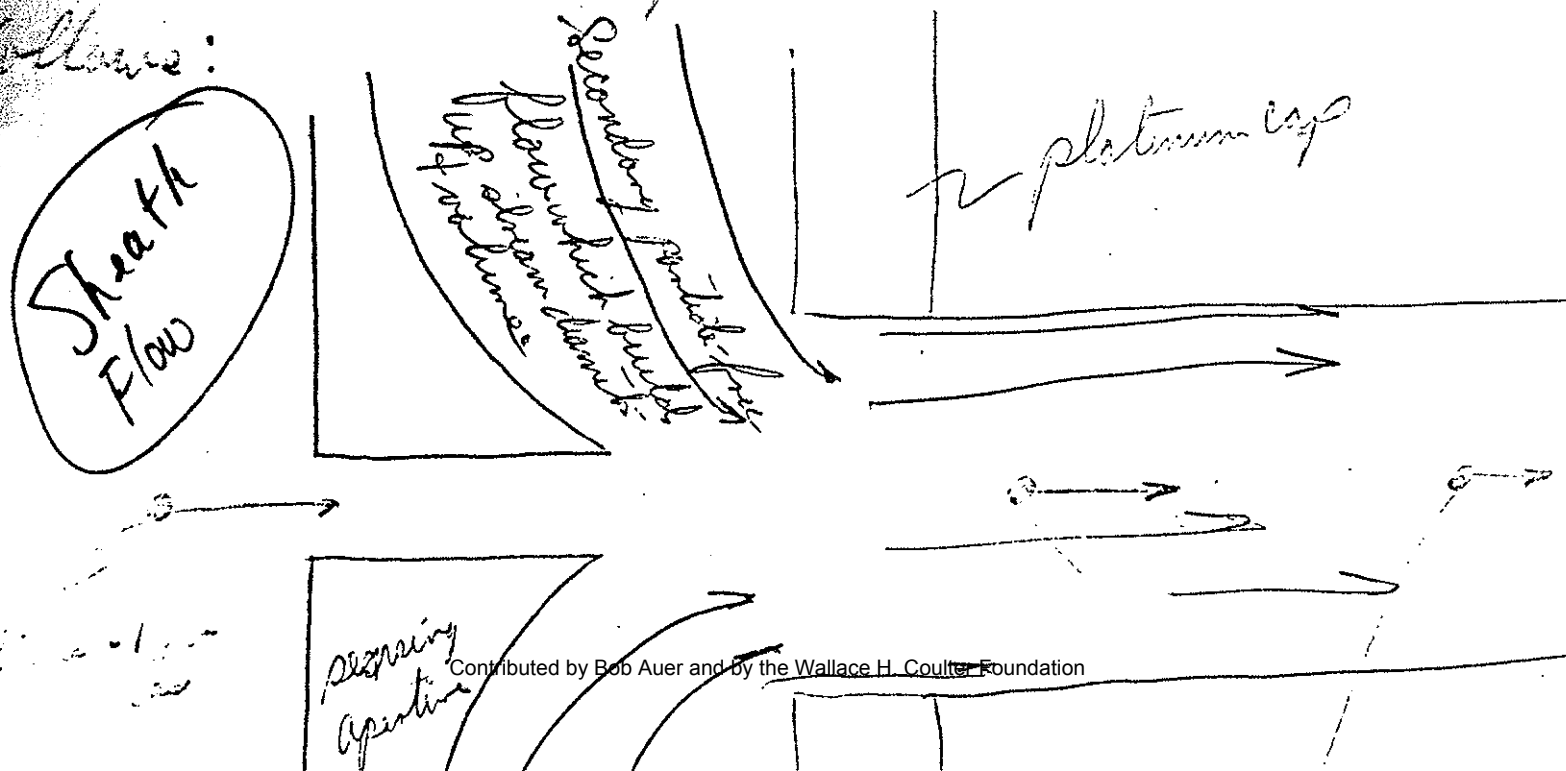 follows:
Sheath
Flow
Secondary particle-free
flow which builds
up stream diameter
& volume.
platinum cap
sensing
aperture
Contributed by Bob Auer and by the Wallace H. Coulter Foundation